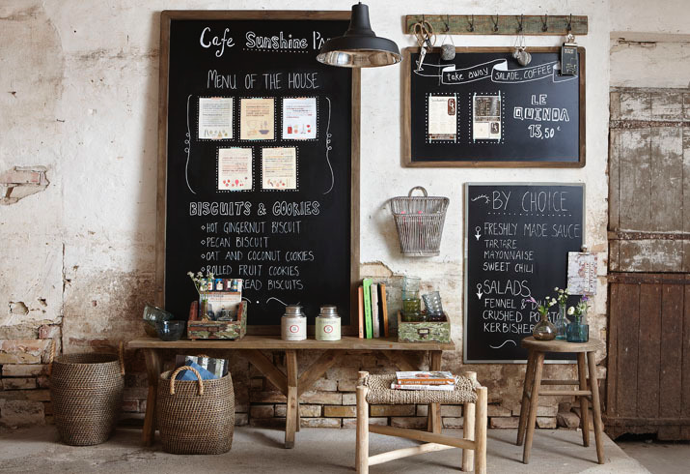 Cafe Sunshine
MENU OF THE HOUSE
BISCUITS & COOKIES
HOT GINGERNUT BISCUIT
PECAN BISCUIT
OAT AND COCONUT COOKIES
ROLLED FRUIT COOKIES
READ BISCUITS
take away SALADE, COFFEE
LE
QUINOA
13,50 €
BY CHOICE
FRESHLY MADE SAUCE
TARTARE
MAYONNAISE
SWEET CHILI
SALADS
FENNEL &
CRUSHED POTATO